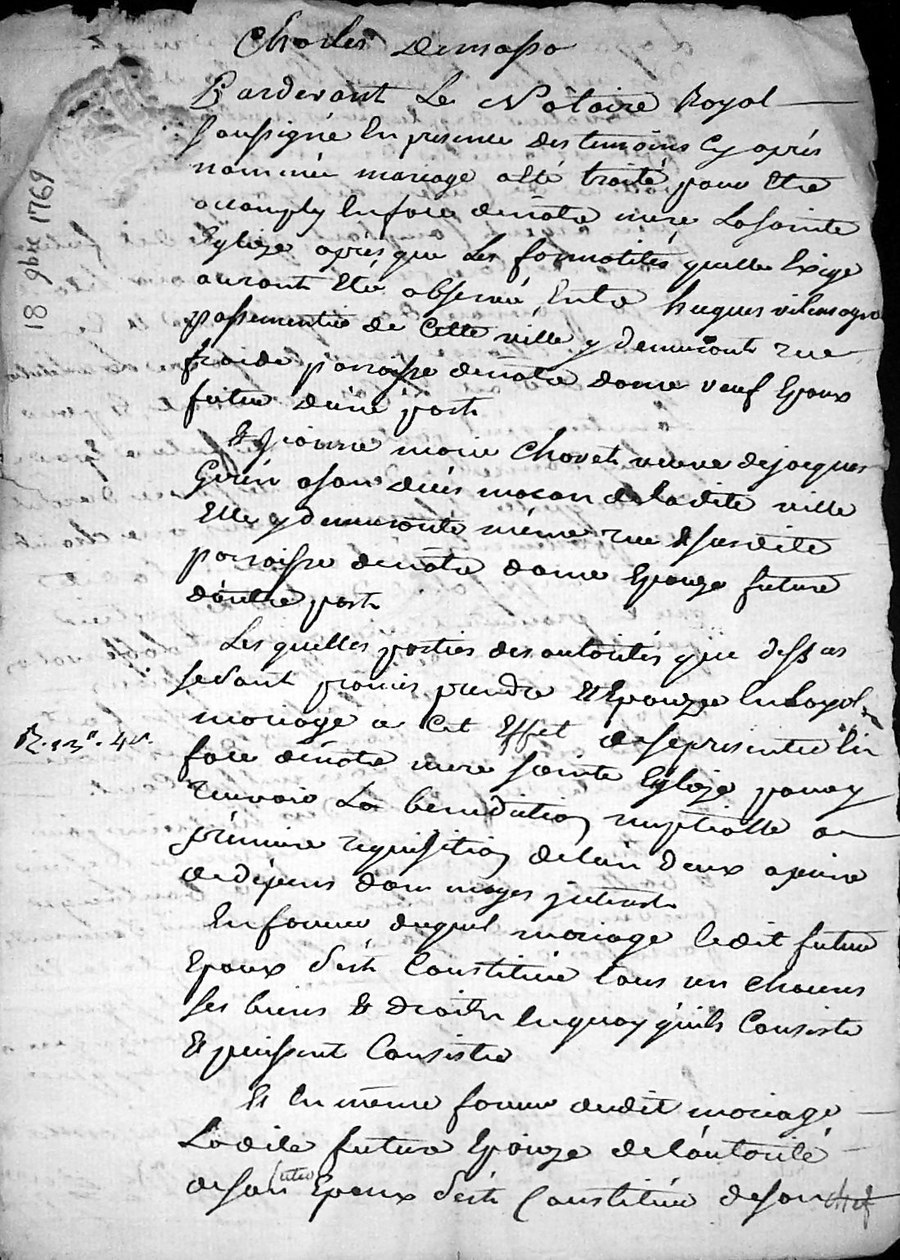 Charles Demasso
Pardevant Le Notaire Royal
soussigné En presence des temoins Cy après
nommés mariage a été traité pour Etre
accomply En face de nôtre mere La Sainte
Eglize après que Les formalités quelle Exige
auront Eté observé Entre hugues
passementier de Cette ville y demeurant rue
froide parroisse de nôtre dame veuf Epoux
futur d'une part
Et pierre marie Chovet veuve de jacques
Guérin a son décès maçon de ladite ville
Elle y demeurante même rue Et susdite
parroisse de nôtre dame Epouze future
d'autre part
Les quelles parties des autorités que dessus
se sont promis prendre Et Epouzer En Loyal
mariage a Cet Effet de se presenter En
face de nôtre mere sainte Eglize pour y
recevoir La benediction nuptialle a
première requisition de lun deux a peine
de dépens dommages interests
En faveur duquel mariage ledit futur
Epoux s'est Constitué tous un chacuns
ses biens Et droits En quoy qu'ils Consiste
Et puissent Consister
Et En même faveur dudit mariage
Ladite future Epouze de l'autorité
de son futur Epoux s'est Constituée de son chef
18 9bre 1769